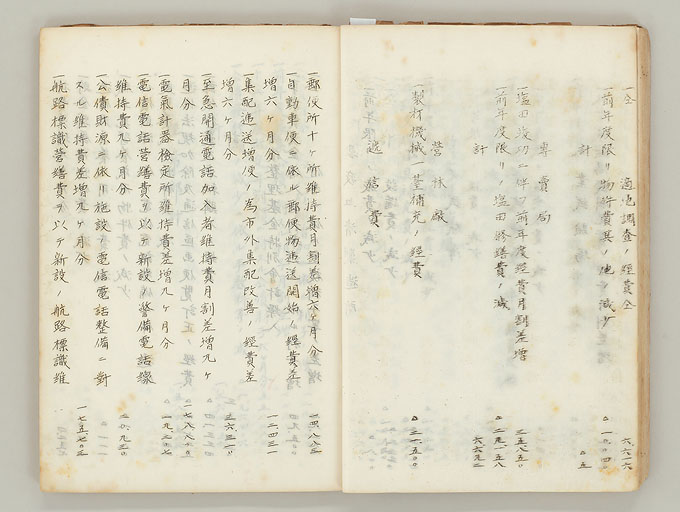 一仝 適地調査ノ經費仝 六六一六
一前年度限リ物件費其ノ他ノ減少 △一八〇〇四
計 △五
專賣局
一塩田竣功ニ伴フ前年度經費月割差增 三五八五〇
一前年度限リノ塩田修繕費ノ減 △二九一五八
計 六六九二
營林廠
一製材機械一基補充ノ經費 △三一五〇〇
遞信費
一郵便所十ヶ所維持費月割差增六ヶ月分 一四八八三
一自動車便ニ依ル郵便物遞送開始ノ經費差
增六ヶ月分 一二四三一
一集配遞送增便ノ爲市外集配改善ノ經費差
增六ヶ月分 三六三一〇
一至急開通電話加入者維持費月割差增九ヶ
月分 一七八八八〇
一電氣計器檢定所維持費差增九ヶ月分 一九二〇七
一電信電話營繕費ヲ以テ新設ノ警備電話線
維持費九ヶ月分 二〇九二〇
一公債財源ニ依リ施設ノ電信電話整備ニ對
スル維持費差增九ヶ月分 一七五七〇三
一航路標識營繕費ヲ以テ新設ノ航路標識維